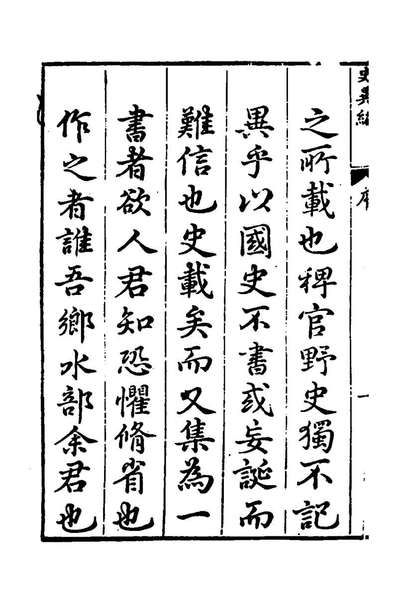 史異編
序
之所載也稗官野史獨不記
異乎以國史不書或妄誕而
難信也史載矣而又集為一
書者欲人君知恐懼脩省也
作之者誰吾鄉水部余君也